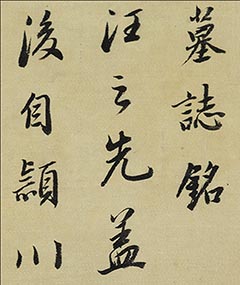 墓誌銘
汪之先盖
後自頴川